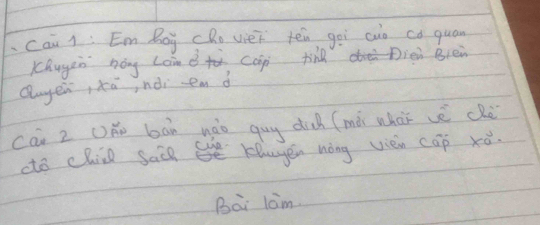 Câu 1: Em hãy cho viết tên gọi của cơ quan
Khuyến nông ở cấp tỉnh Điện Biên
, xã, nơi em ở
Câu 2 Văn bản nào quy định (mới nhất về chế
độ chính sách của khuyến nông viên cấp xã.
Bài làm.